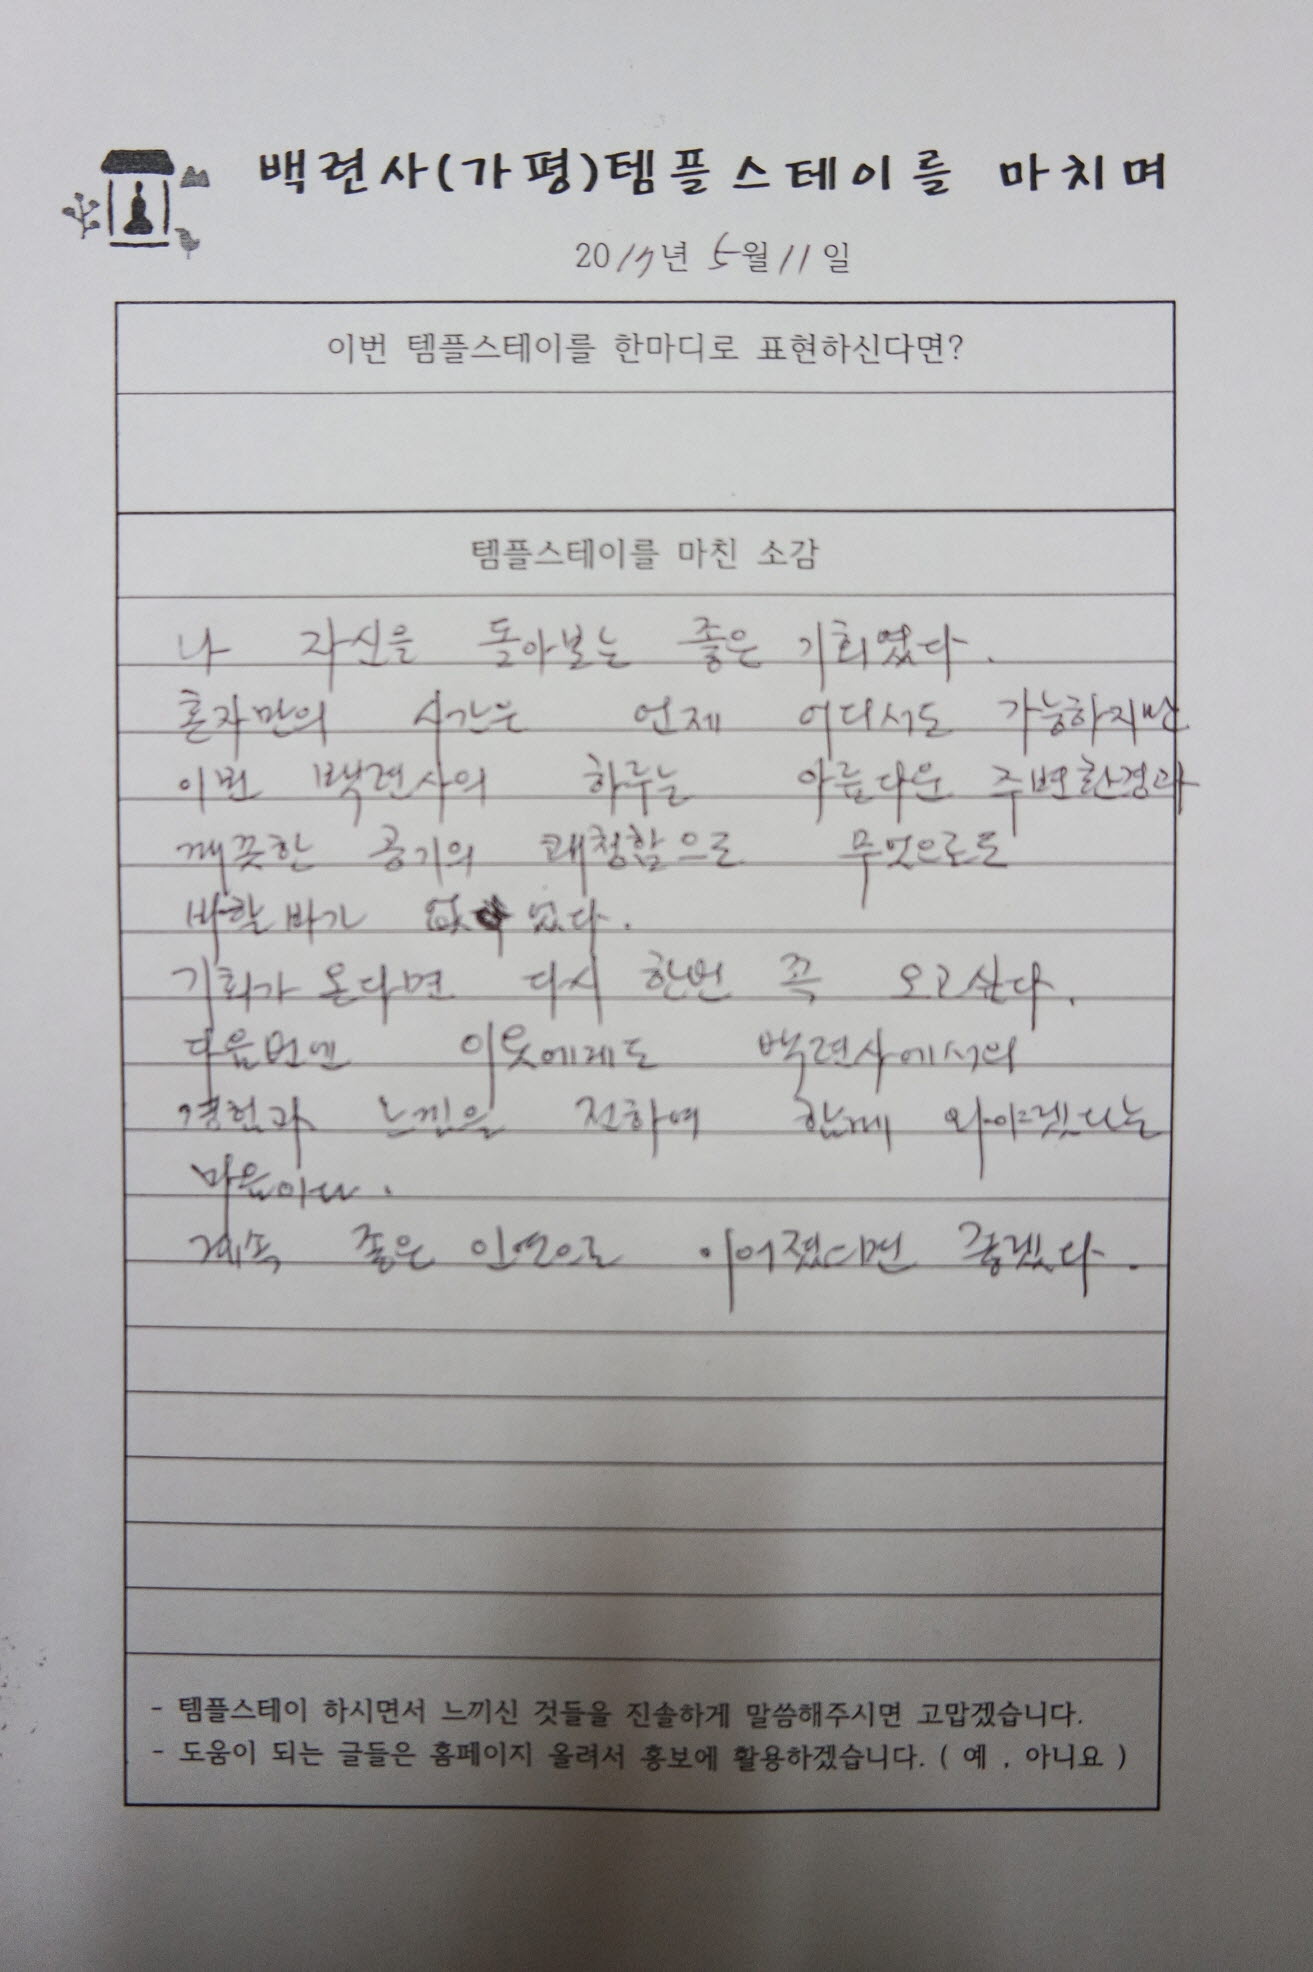 백련사(가평)템플스테이를 마치며
2017년 5월 11일
이번 템플스테이를 한마디로 표현하신다면?
템플스테이를 마친 소감
나 자신을 돌아보는 좋은 기회였다.
혼자만의 시간은 언제 어디서도 가능하지만
이번 백련사의 하루는 아름다운 주변환경과
깨끗한 공기의 쾌청함으로 무엇으로도
바할 바가 없 없다.
기회가 온다면 다시 한번 꼭 오고싶다.
다음번엔 이웃에게도 백련사에서의
경험과 느낌을 전하여 함께 와야겠다는
마음이다.
계속 좋은 인연으로 이어졌으면 좋겠다.
- 템플스테이 하시면서 느끼신 것들을 진솔하게 말씀해주시면 고맙겠습니다.
- 도움이 되는 글들은 홈페이지 올려서 홍보에 활용하겠습니다. ( 예 , 아니요 )